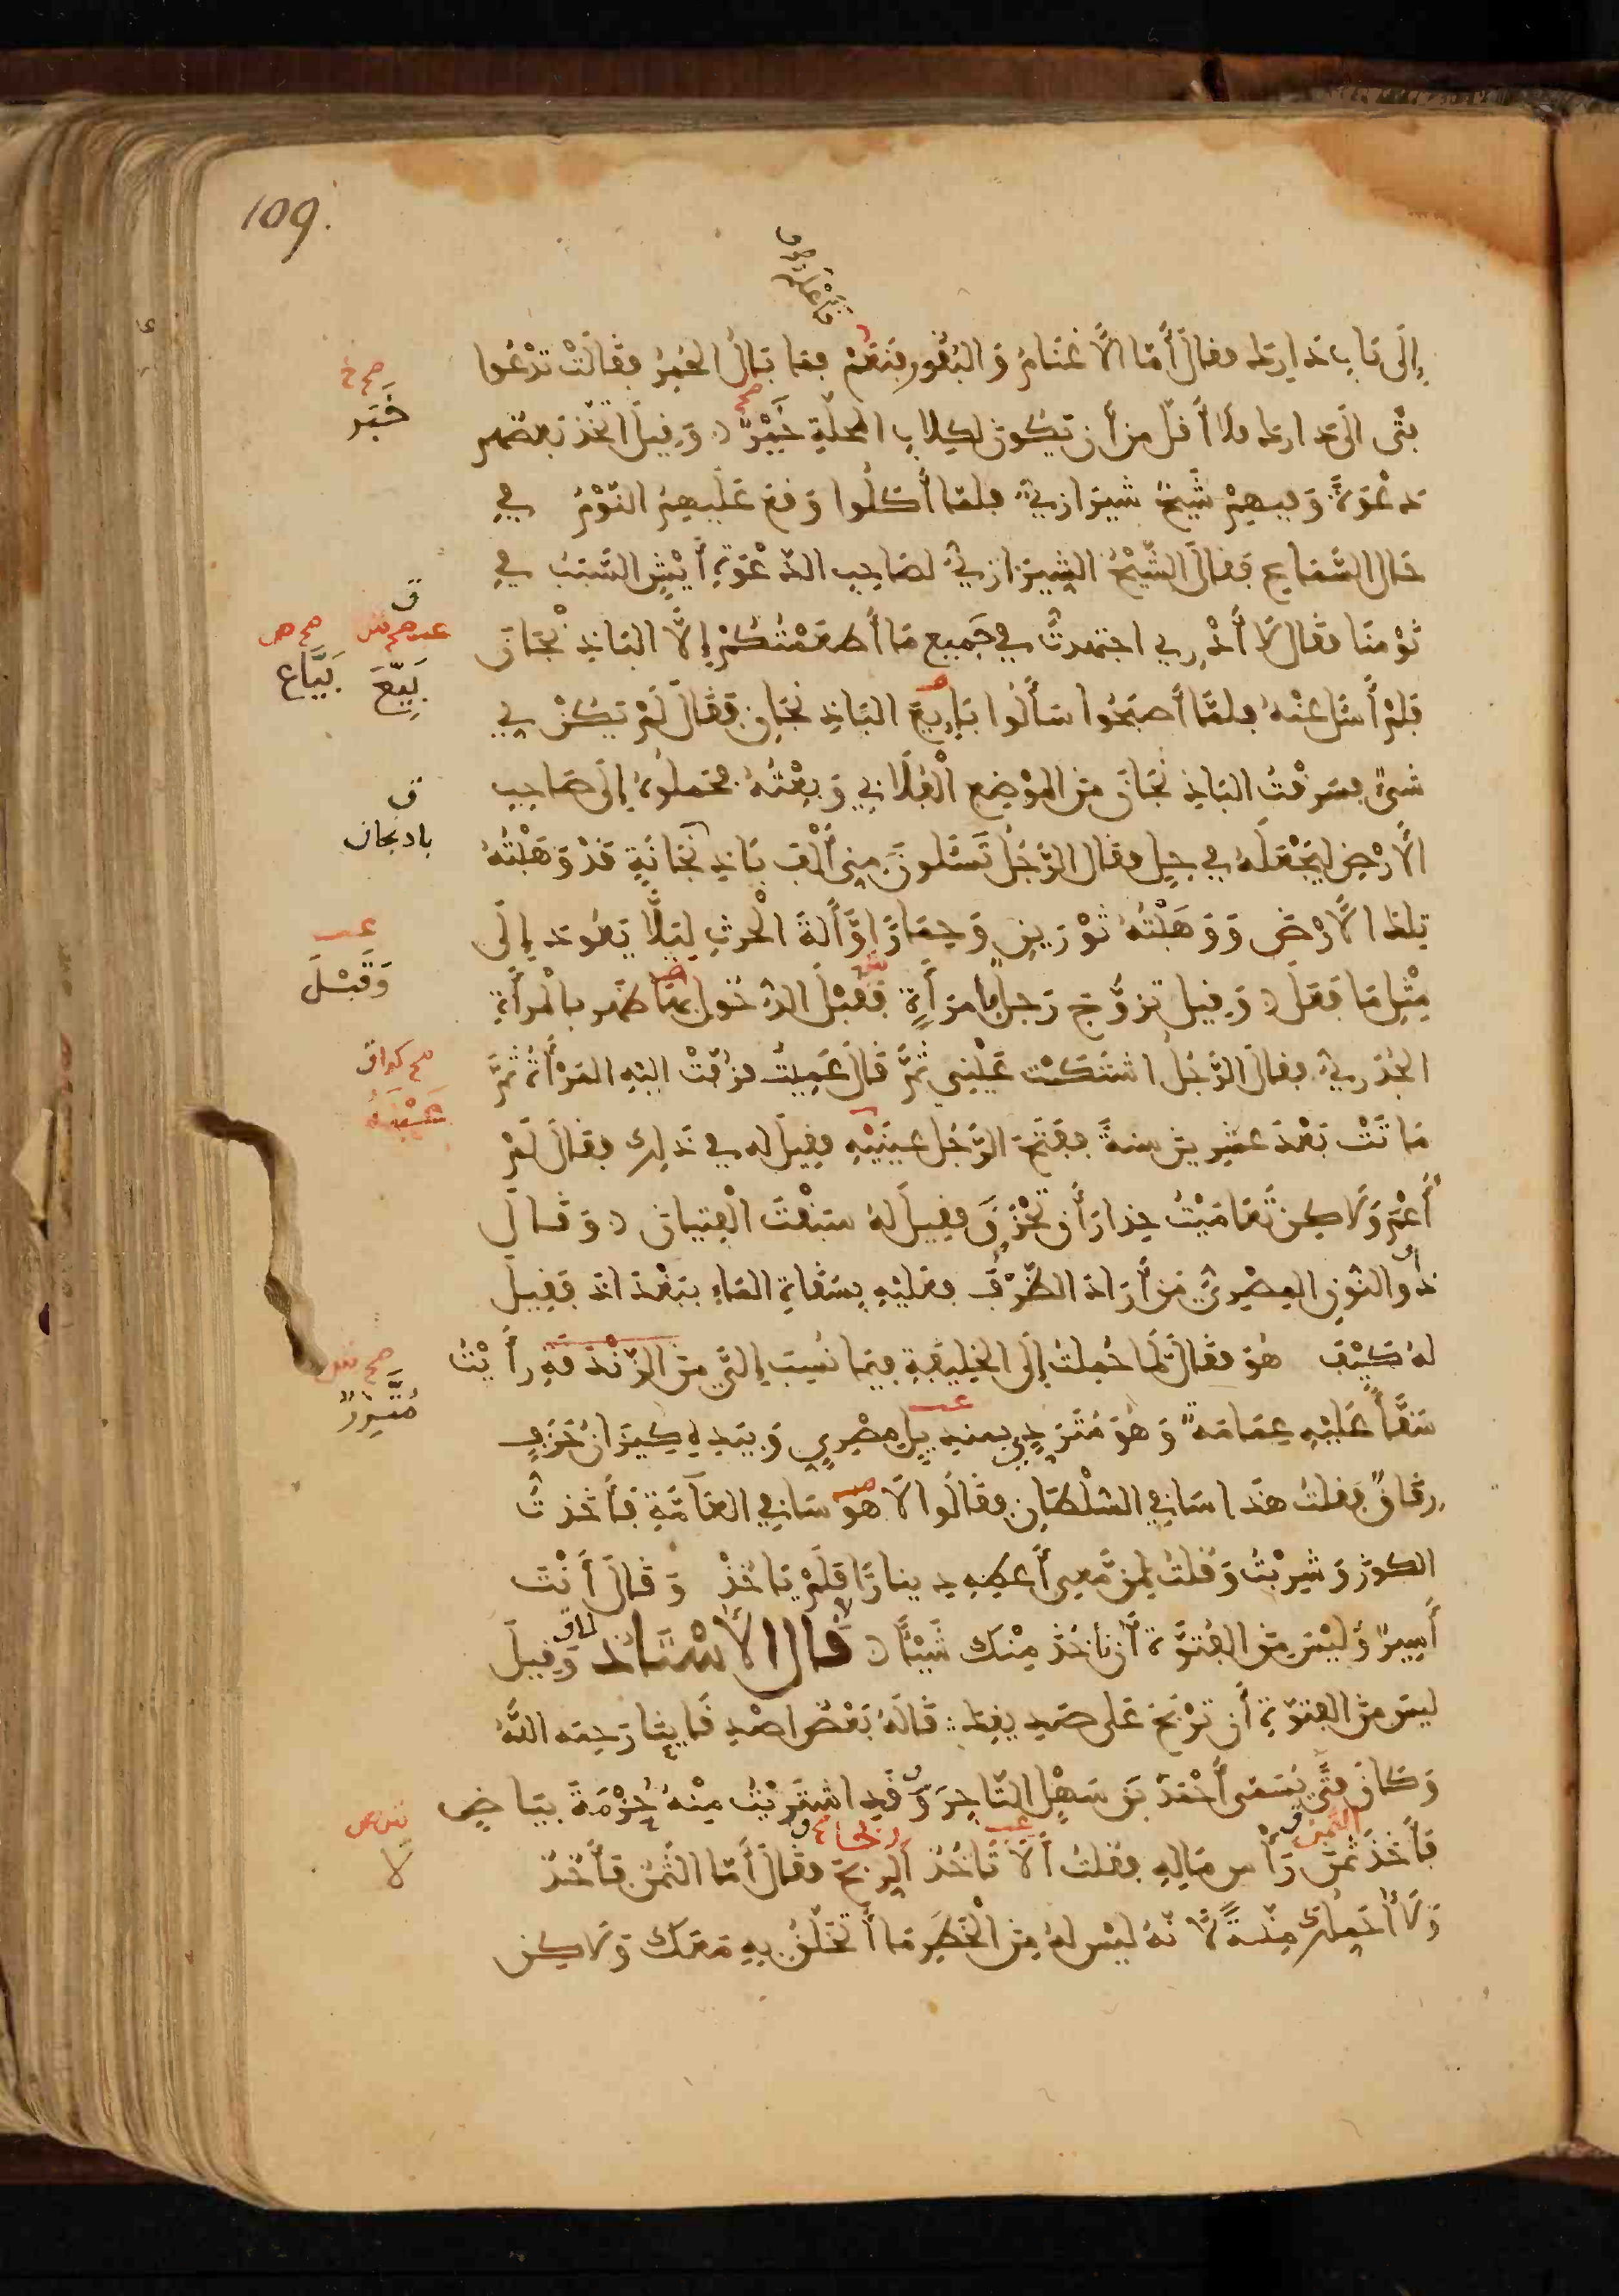 109.
إِلَى بَاب دَارِك فقال أَمَّا الأَغْنَامُ وَالبُقُور فَنَعَمْ فما بَالُ الحُمُرُ فقَالَتْ تَدْعُوا
فتًى الَى دَارك فلا أَقَلّ من أن يَكُون لكِلاب المحلّةِ خَيْرٌ وَقِيلَ اتّخَذ بعضهم
دعْوَةً وَفيهِمْ شَيْخٌ شيرَازِيٌّ فلما أَكَلُوا وَقَع عَلَيهِمُ النّوْمُ في
حَال السَّمَاع فَقالَ الشّيْخُ الشِيرَازِيُّ لصَاحِبِ الدّعْوَةِ أَيْشٍ السَّبَبُ في
نَوْمنَا فقَالَ لَا أَدْرِي اجتهدتُّ في جَمِيع مَا أَطعَمْتُكُمْ إِلَّا البَاذِنْجَانَ
فَلَمْ أَسْأَل عنْهُ فلمَّا أَصبَحُوا سَأَلُوا بَايِعَ البَاذِنْجَانِ فقَالَ لَمْ يَكُنْ لِي
شَىْءٌ فسَرَقْتُ البَاذِنْجَانَ مِنَ المَوْضِعِ الْفُلَانِي وَبِعْتُهُ فحَملُوهُ إِلَى صَاحِب
الأَرْضِ لِيَجْعَلَهُ في حِلٍ فقَال الرَّجُلُ تَسْئَلُونَ مِنِي أَلْفَ بَاذِنْجَانَةٍ قَدْ وَهَبْتُهُ
تِلْكَ الأَرْضَ وَوَهَبْتُهُ ثَوْرَيْنِ وَحِمَارًا وَّآلةَ الْحَرثِ لِيَلَّا يَعُودَ إِلَى
مِثْلِ مَا فَعَلَ وَقِيل تزوَّجَ رَجلٌ بامرَأَةٍ فَقَبْلَ الدُّخُول بهَا ظهَر بالْمرأَةِ
الجُدَرِيُّ فقَالَ الرَّجُلُ اشتَكَت عَيْنِى ثُمَّ قَالَ عَمِيتُ فزُفّتْ اليْهِ المَرْأَةُ ثُمَّ
مَاتَتْ بَعْدَ عشْرِينَ سنةً فَفَتَحَ الرَّجُلُ عينَيْهِ فقِيلَ له في ذَلِك فقَالَ لَمْ
أَعْمَ وَلَاكِنْ تَعَامَيْتُ حِذَارَ أَن تَحْزَنَ فقِيلَ لهُ سَبَقْتَ الْفِتيَانَ وَقَالَ
ذُو النّونِ المِصْرِيُّ مَنْ أَرَادَ الظَّرْفَ فعَلَيْهِ بِسُقَاةِ المَاءِ ببَغْدَاذَ فَقِيلَ
لهُ كَيْفَ هُوَ فقَالَ لَمَّا حُمِلتُ إِلَى الخَلِيفَةِ فيمَا نُسِبَ إِلَيَّ مِنَ الزّنْدَقَةِ رأَيْتُ
سَقَّاءً عَلَيْهِ عِمَامَةٌ وَهُوَ مُتَرَدٍّ بمِنْدِيلٍ مِصْرِيٍ وَبِيَدِهِ كِيزَانُ خَزَفٍ
رِقَاقٌ فَقلتُ هذَا سَاقي السُلْطَانِ فقَالُوا لَا هوَ سَاقي العَامَّةِ فأَخَذتُ
الكُوزَ وَشَرِبْتُ وَقُلتُ لِمَنْ مَّعِي أَعطِهِ دِينارًا فَلَمْ يَاخُذْ وَقَالَ أَنْتَ
أَسِيرٌ وَلَيْسَ مِنَ الفُتُوَّةِ أَنْ نَاخُذَ مِنْك شَيْئًا قَال الأُسْتَاذ وَقِيلَ
ليسَ مِنَ الفتوّةِ أَن تَرْبَحَ عَلى صَدِيقِك قَالَهُ بَعْضُ أصْدِقَايِنَا رَحِمَه اللَّهُ
وَكَانَ فَتًى يُسَمَّى أَحْمَدَ بنَ سَهْلِ التّاجِرَ وَقَدِ اشْتَرَيْتُ مِنْهُ خِرْقَةَ بيَاضٍ
فأَخَذَ ثَمَنَ رَأْسِ مَالِهِ فقلتُ أَلَا تَاخُذُ الرِبْحَ فقَالَ أَمّا الثّمنُ فَآخُذُ
وَلَا أُحَمِلُكَ مِنّةً لأَنّهُ لَيْسَ لهُ مِنَ الْخَطَرِ مَا أَتَخَلَّقُ بِهِ مَعَكَ وَلاكِن
صح خ
خَبَر
صح ص
بَيَّاع
بَيِّعَ
ق
بادنجان
عـ
وَقَبْلَ
مُتَّزِرٌ
لَا